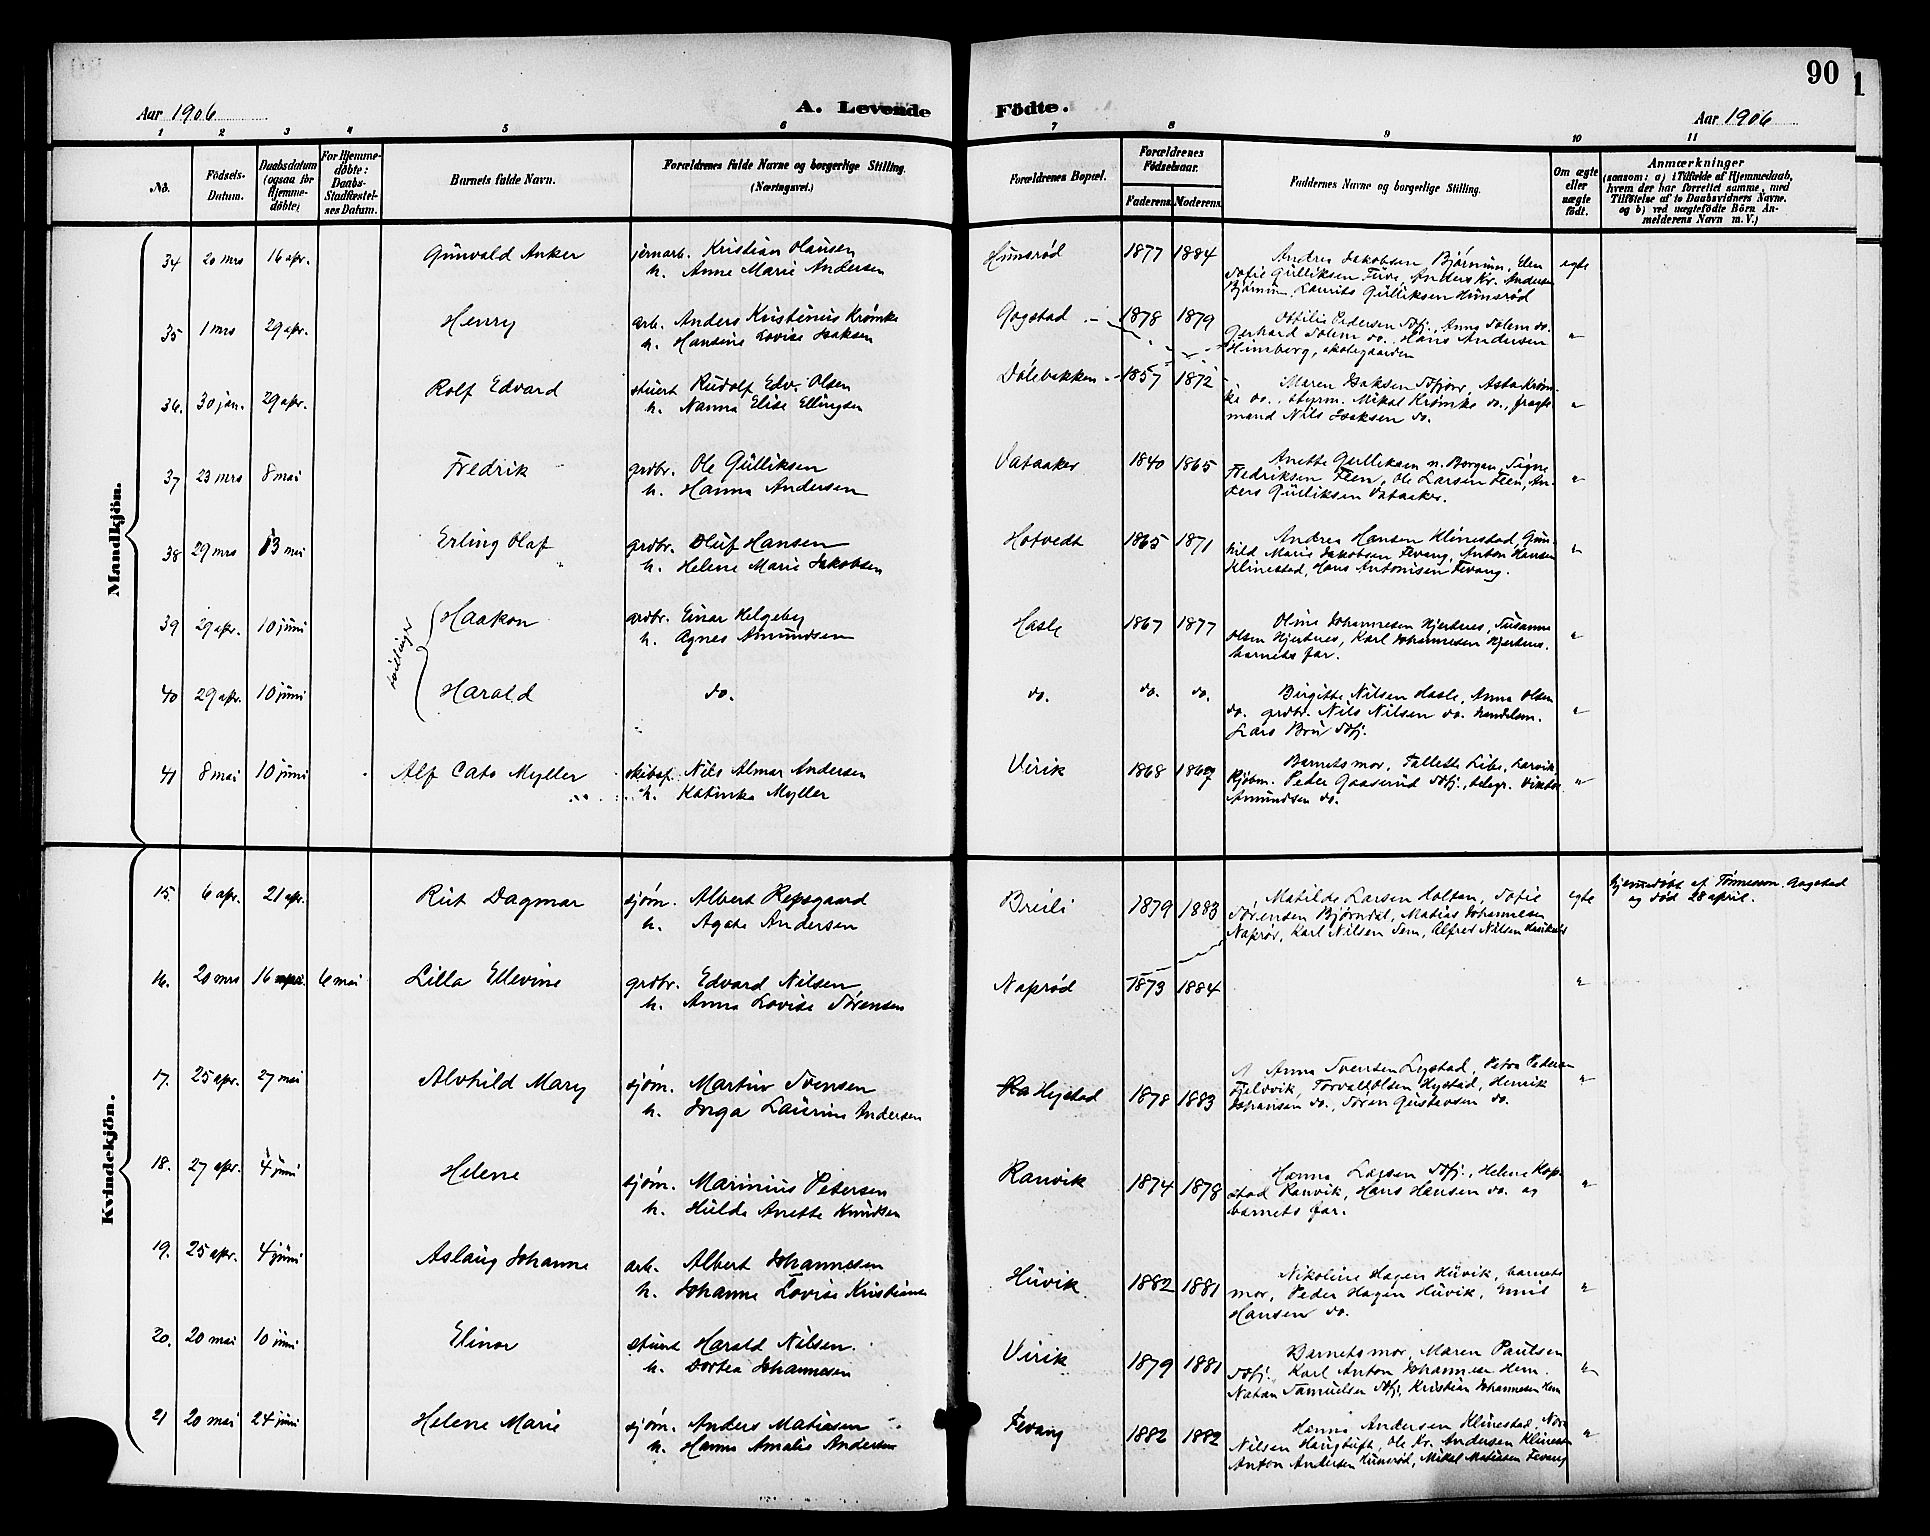 90
Aar 1906
A. Levende
Födte.
Aar 1906
1 2 3 4 5 6 7 8 9 10 11
No.
Födsels-
Datum.
Daabsdatum
(ogsaa for
Hjemme-
døbte)
For Hjemme-
døbte:
Daabs-
Stadfæstel-
ses Datum.
Barnets fulde Navn.
Forældrenes fulde Navne og borgerlige Stilling.
(Næringsvei.)
Forældrenes Bopæl.
Forældrenes
Födselsaar.
Faderens
Moderens
Faddernes Navne og borgerlige Stilling.
Om ægte
eller
uægte
født.
Anmærkninger
(saasom: a) i Tilfælde af Hjemmedaab,
hvem der har forrettet samme, med
Tilføielse af to Daabsvidners Navne.
og b) ved uægtefödte Börn An-
melderens Navn m. V.)
Mandkjön.
34 20 mrs 16 apr. Gunvald Anker jernarb. Kristian Olausen
h. Anne Marie Andersen
Hunsrød 1877 1884
Andrea Jakobsen Bjørnum, Elen
Sofie Gulliksen Fure, Anders Kr. Andersen
Bjørnum, Laurits Gulliksen Hunsrød
egte
35 1 mrs 29 apr. Henry arb. Anders Kristinius Krømke
h. Hansine Lovise Isaksen
Gogstad 1878 1879
Otilie Pedersen Sdfj., Anna Solem do.
Gerhard Solem do. Hans Andersen
Himberg, skolegaarden
"
36. 30 jan. 29 apr. Rolf Edvard stuert Rudolf Edv. Olsen
h. Nanna Elise Ellingsen
Dølebakken 1857 1872
Maren Isaksen Sdfjor, Asta Krøm-
ke do., styrm. Mikal Krømke do., fragte
mand Nils Isaksen do.
"
37 23 mrs 8 mai Fredrik grdbr. Ole Gulliksen
h. Hanna Andersen
Vataaker 1840 1865
Anette Gulliksen n. Borgen, Signe
Fredriksen Feen, Ole Larsen Feen, An-
ders Gulliksen Vataaker.
"
38 29 mrs 13 mai Erling Olaf grdbr. Oluf Hansen
h. Helene Marie Jakobsen
Hotvedt 1865 1871
Andrea Hansen Klinestad, Gun-
hild Marie Jakobsen Fevang, Anton Hansen
Klinestad, Hans Antonisen Fevang.
"
tvillinger
39 29 apr. 10 juni Haakon grdbr. Einar Helgeby
h. Agnes Amundsen
Hasle 1867 1877
Oline Johannesen Hjertnes, Susanne
Olsen Hjertnes, Karl Johannesen Hjertnes.
barnets far.
"
40 29 apr. 10 juni Harald do.
do. do. do.
Birgitte Nilsen Hasle, Anna Olsen
do. grdbr. Nils Nilsen do. handelsm.
Lars Bru Sdfj.
"
41 8 mai 10 juni Alf Cato Myller skibsf. Nils Almar Andersen
h. Katinka Myller
Virik 1868 1869
Barnets mor, Larvik
Kjøbm. Peder Gaaserud Sdfj., telegr. Viktor
Amundsen do.
"
Kvindekjön.
15. 6 apr. 21 apr. Rut Dagmar sjøm. Albert Repsgaard
h. Agate Andersen
Breili 1879 1883
Matilde Larsen Holtan, Sofie
Sørensen Bjørndal, Matias Johannesen
Naprød, Karl Nilsen Sem, Alfred Nilsen
egte
hjemmedøbt af Tønnessen Gogstad
og død 28 april.
16. 20 mrs 16 6 mai Lilla Ellevine grdbr. Edvard Nilsen
h. Anna Lovise Sørensen
Naprød 1873 1884
"
17. 25 apr. 27 mai Alvhild Mary sjøm. Martin Svensen
h. Inga Laurine Andersen
Hystad 1878 1883
Anna Svensen Lystad, Petra Petersen
Fjeldvik, Torvald Olsen Hystad, Henrik
Johansen do., Søren Gustavsen do.
"
18. 27 apr. 4 juni Helene sjøm. Marinius Petersen
h. Hulda Anette Knudsen
Ranvik 1874 1878
Hanna Larsen Sdfj., Helene Kop-
stad Ranvik, Hans Hansen do. og
barnets far.
"
19. 25 apr. 4 juni Aslaug Johanne arb. Albert Johannesen
h. Johanne Lovise Kristiansen
Huvik 1882 1881
Nikoline Hagen Huvik, barnets
mor, Peder Hagen Huvik, Emil
Hansen do.
"
20. 20 mai 10 juni Elinor stuert Harald Nilsen.
h. Dortea Johannesen
Virik 1879 1881
Barnets mor, Maren Paulsen
Sdfj. Karl Anton Johannesen Hem.
Natan Samuelsen Sdfj. Kristian Johannesen Hem
"
21 20 mai 24 juni Helene Marie sjøm. Anders Matiasen
h. Hanna Amalie Andersen
Fevang 1882 1882
Hanna Andersen Klinestad, Nora
Nilsen Haugtuft, Ole Kr. Andersen Klinestad
Anton Andersen Hunsrød, Mikal Matiasen Fevang
"